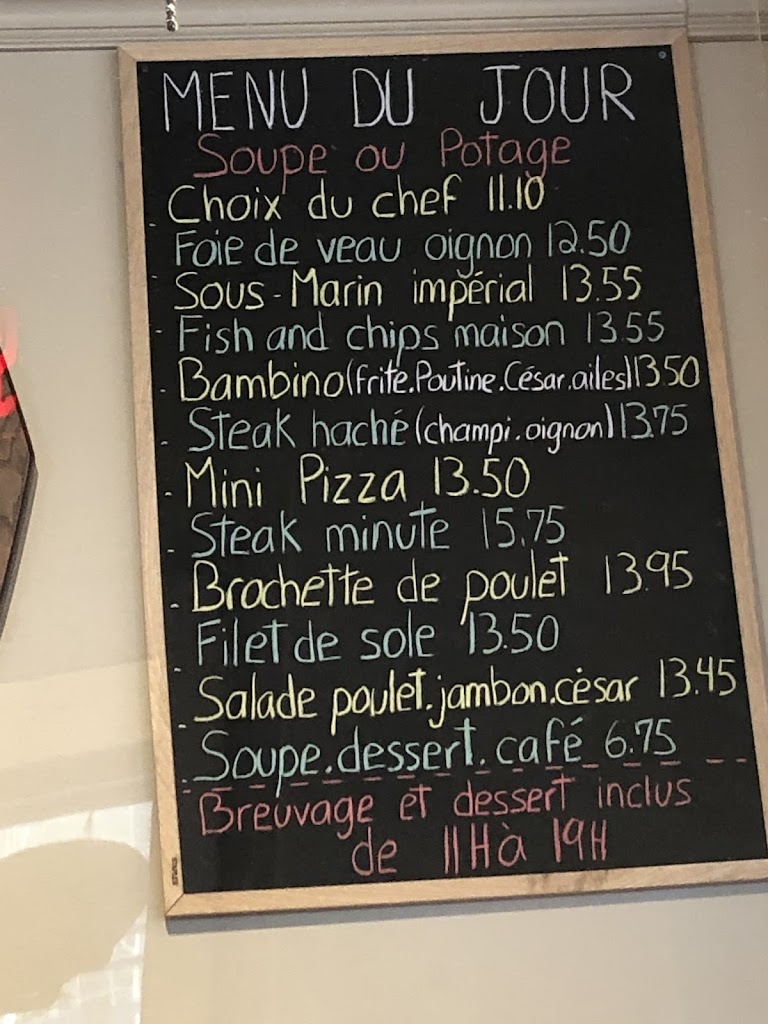 MENU DU JOUR
Soupe ou Potage
- Choix du chef 11.10
Foie de veau oignon 12.50
- Sous-Marin impérial 13.55
- Fish and chips maison 13.55
- Bambino (frite.Poutine.César.ailes) 13.50
- Steak haché (champi.oignon) 13.75
- Mini Pizza 13.50
- Steak minute 15.75
- Brochette de poulet 13.95
- Filet de sole 13.50
- Salade poulet.jambon.césar 13.45
- Soupe.dessert.café 6.75
Breuvage et dessert inclus
de 11H à 19H